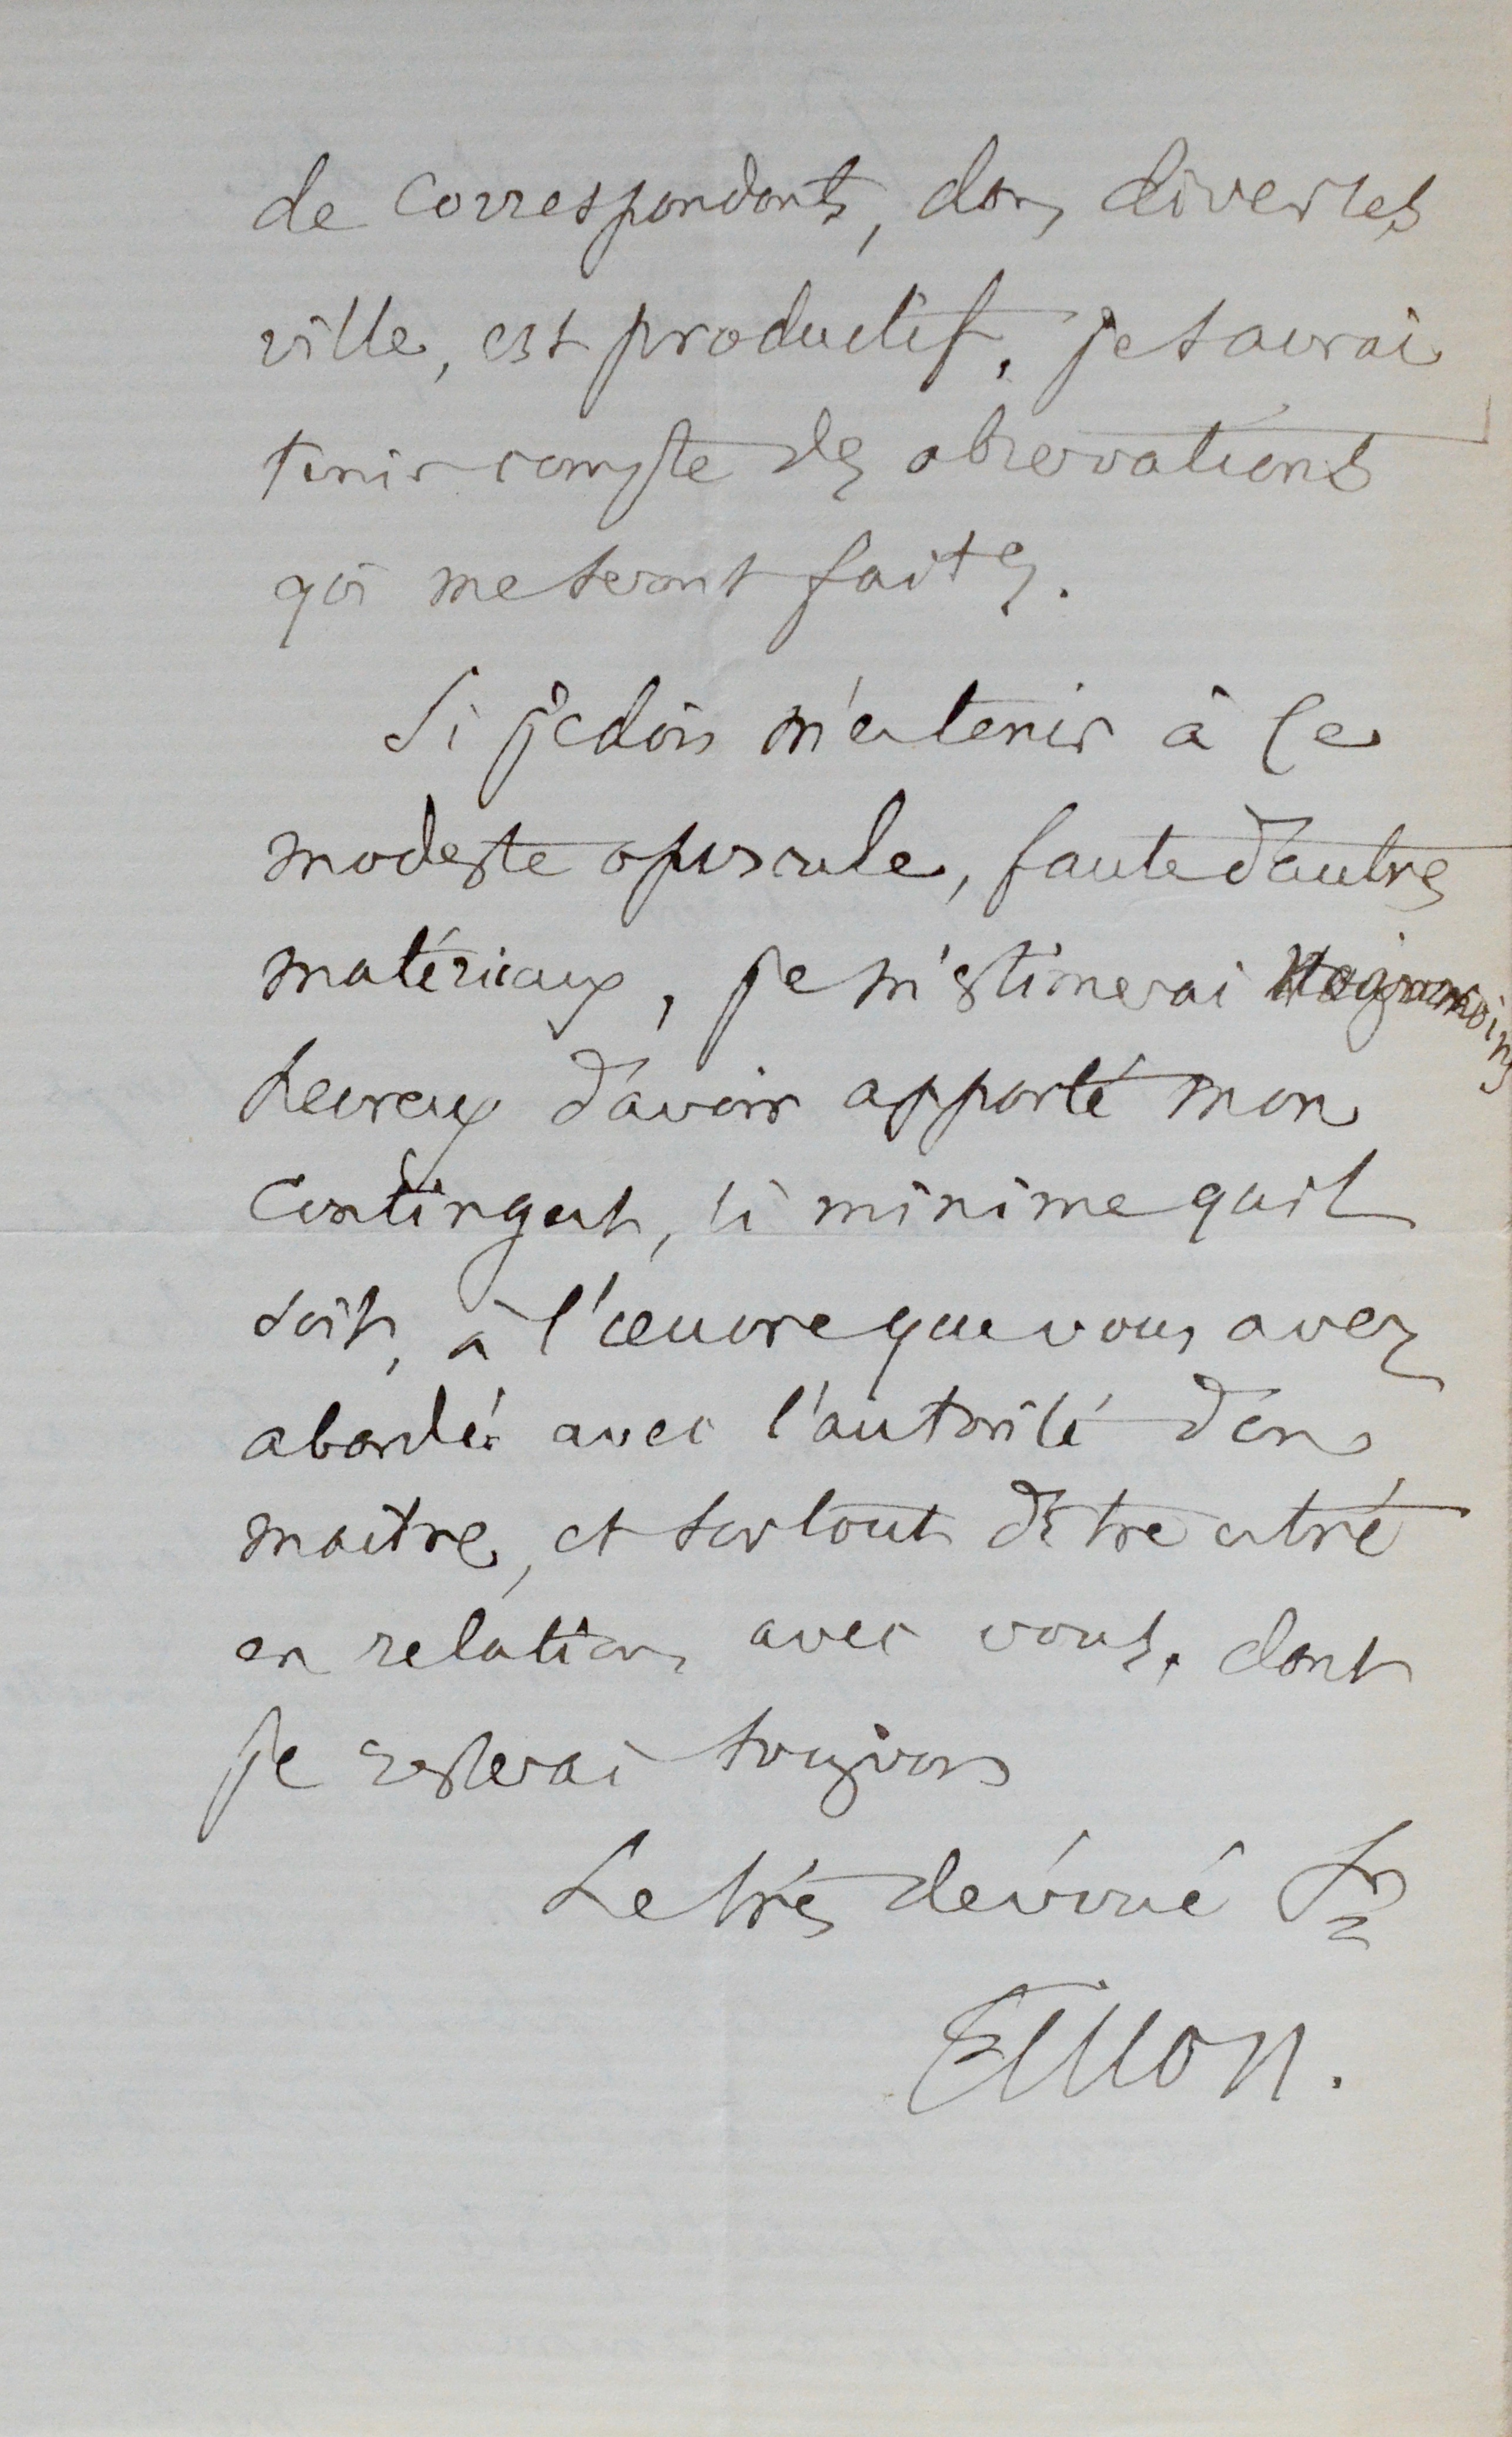 de correspondants, dans diverses
ville, est productif, je saurai
tenir compte des observations
qui me seront faites.
Si je dois m'en tenir à ce
modeste opuscule, faute d'autres
matériaux, je m'estimerai néanmoins
heureux d'avoir apporté mon
contingent, si minime qu'il
soit, à l'œuvre que vous avez
abordée avec l'autorité d'un
maître, et surtout d'être entré
en relations avec vous, dont
je resterai toujours
Le très dévoué Sr